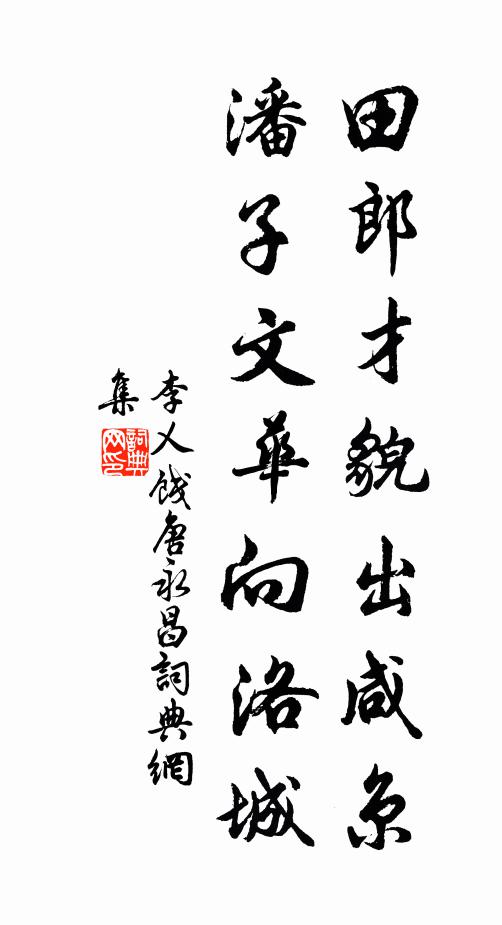 田郎才貌出咸京
潘子文華向洛城
李乂餞唐永昌詞典網
集
詞典網印